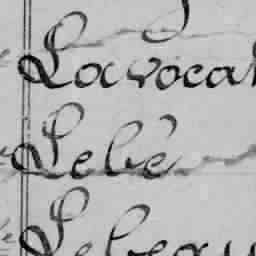 Lavocat
Lebé
Lebeau